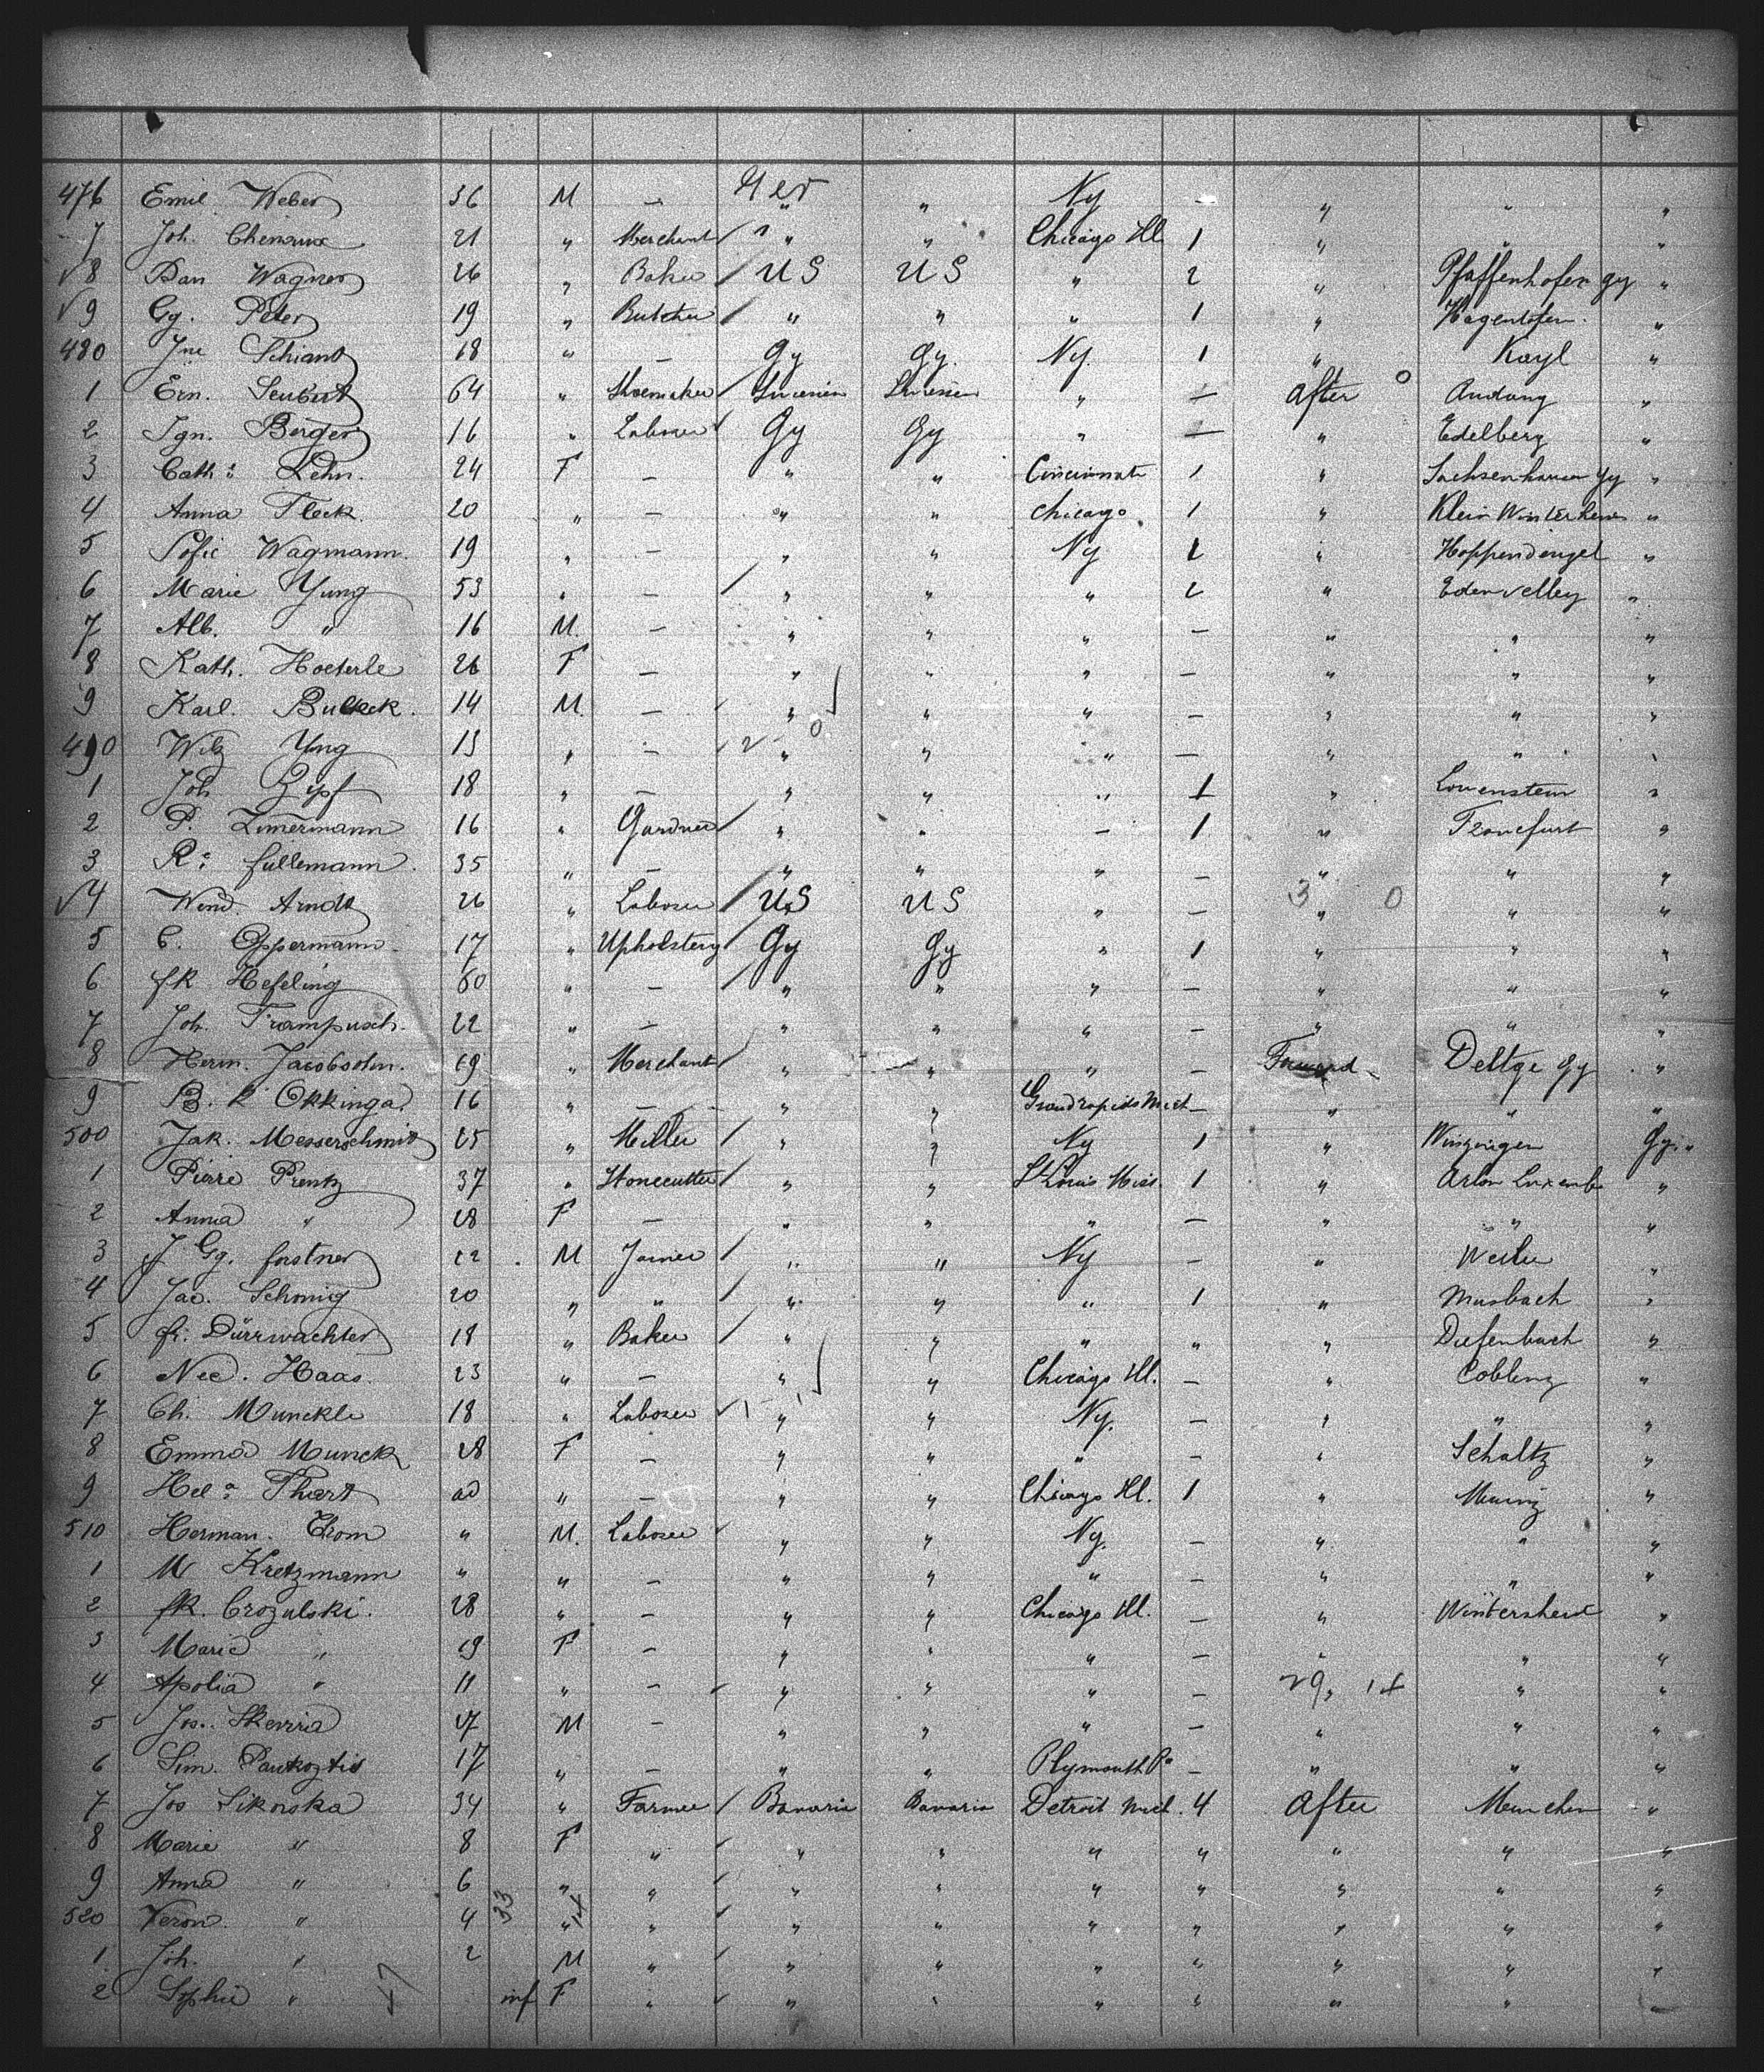 476 Emil Weber 36 M — Ger " " Ny — " " "
7 Joh. Chenaux 21 " Merchant / " " Chicago Ill 1 " " "
√8 Dan Wagner 26 " Baker / US US " 2 " Pfaffenhofen gy "
√9 Gg. Peter 19 " Butcher / " " " 1 " Hagenhofen "
480 Schiano 18 " — Gy Gy. Ny. 1 " Kayl "
1 Ern. Seubert 64 " Shoemaker / " — After o Andung "
2 Ign. Berger 16 " Laborer Gy Gy " — " Edelberg "
3 Cath: Lehn. 24 F — " " Cincinnati 1 " Sachsenhausen Gy "
4 Anna Fleck. 20 " — " " Chicago 1 " Klein Winterheim "
5 Sofie Wagmann. 19 " — " " Ny 1 " "
6 Marie Yung 53 " — / " " " 2 " "
7 Alb. " 16 M. — " " " — " " "
8 Kath. Hoeterle 26 F — " " " — " " "
9 Karl. 14 M. — " " " — " " "
490 Yung 15 " — " " " — " " "
1 Joh Zipf 18 " — " " " 1 " Louenstein "
2 P. Zimermann 16 " Gardner / " " — 1 " Francfurt "
3 R: Fullemann. 35 " — " " " — " " "
√4 Wend. Arndt 26 " Laborer / US US " — 3 " 0 " "
5 C. Oppermann 17 " Upholstery / Gy Gy " 1 " " "
6 fk Hefeling 60 " — / " " " — " " "
7 Joh. Trampusch. 22 " — " " " — " " "
8 Herm. Jacobsohn. 19 " Merchant / " " " — Forward Deltge Gy "
9 B. K Okkinga. 16 " — " " Grandrapids Mich — " " "
500 Jak. Messerschmit 25 " Miller / " " Ny 1 " Winzingen Gy. "
1 Pierre Prentz 37 " Stonecutter / " " St Louis Miss. 1 " Arlon Luxemb "
2 Anna " 28 F — " " " — " " "
3 J Gg. Forstner 22 M Joiner / " " Ny — " Weiler "
4 Jac. Schmig 20 " " / " " " 1 " Musbach "
5 fr. Dürrwachter 18 " Baker / " " " " " Diefenbach "
6 Nic. Haas. 23 " — " " Chicago Ill. — " Coblenz "
7 Ch. Munckle 18 " Laborer " " Ny. — " " "
8 Emma Munck 28 F — " " " — " Schaltz "
9 Hel: Thart 20 " — " " Chicago Ill. 1 " "
510 Herman. Thom " M. Laborer " " Ny. — " " "
1 M Kretzmann " " — " " " — " " "
2 fk. Crozulski. 28 " — " " Chicago Ill. — " "
3 Marie " 19 F — " " " — " " "
4 Apolia " 11 " — " " " — 29, 14 " "
5 Jos. 17 M — " " " — " " "
6 Sim. 17 " — " " Plymouth Pa — " " "
7 Jos Sikorska 34 " Farmer / Bavaria Bavaria Detroit Mich. 4 After Munchen "
8 Marie " 8 F " " " " " " " "
9 Anna " 6 " " " " " " " " "
520 Veron. " 4 33 " 14 " " " " " " " "
1. Joh. " 2 M " " " " " " " "
2 Sophie " 47 inf F " " " " " " " "